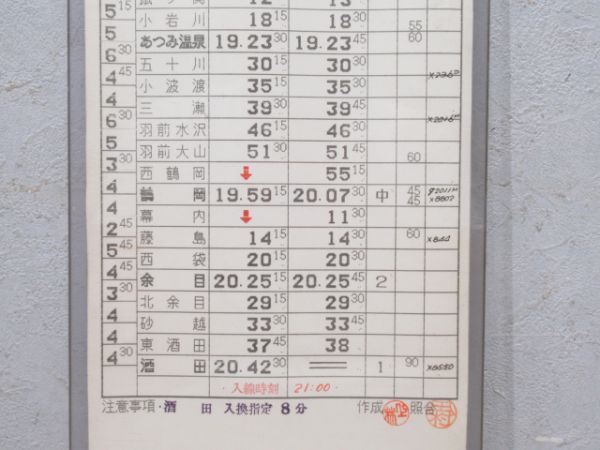 5 15
小岩川 18 15 18 30 55
5 あつみ温泉 19.23 30 19.23 45 60
6 30 五十川 30 15 30 15
4 45 小波渡 35 15 35 30
4 三瀬 39 30 39 45
6 羽前水沢 46 15 46 30
5 羽前大山 51 30 51 45 60
3 30 西鶴岡 ↓ 55 15
4 鶴岡 19.59 15 20.07 30 中 45 45
4 幕内 ↓ 11 30
2 45 藤島 14 15 14 30 60
5 45 西袋 20 15 20 30
4 30 余目 20.25 15 20.25 45 2
3 30 北余目 29 15 29 30
4 砂越 33 30 33 45
4 東酒田 37 45 38
4 30 酒田 20.42 30 ＝ 1 90
・入線時刻 21:00・
注意事項・酒田 入換指定 8分 作成 照合